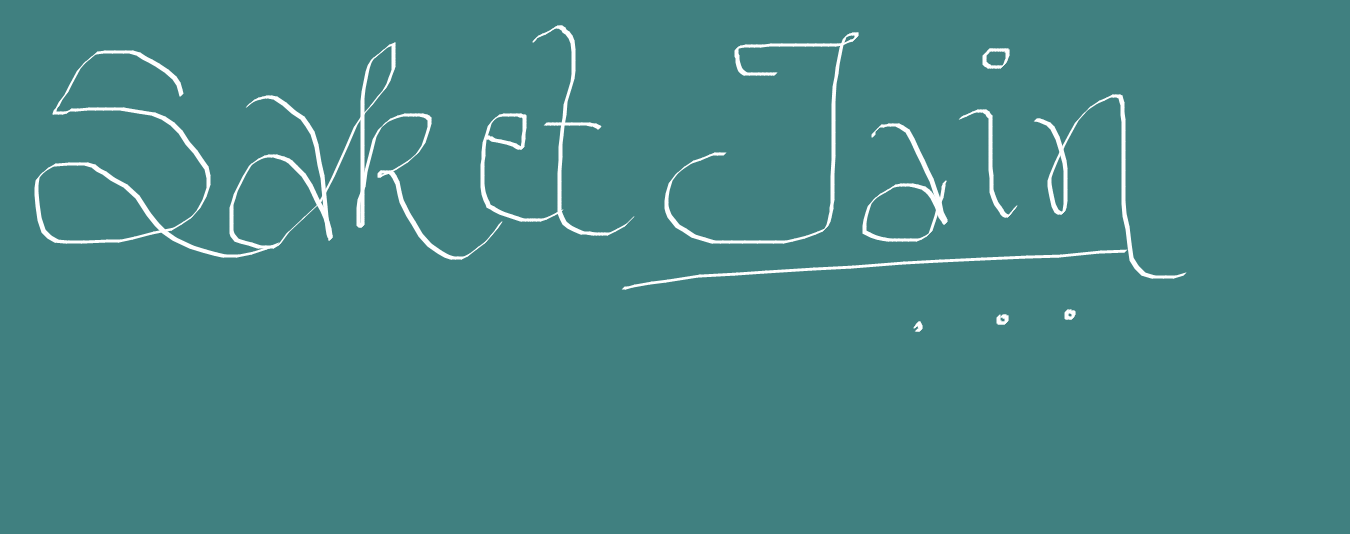 Saket Jain
...